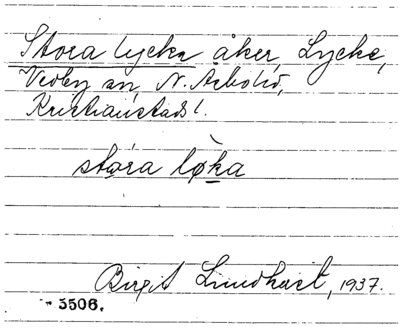 Stora lycka åker, Lycke,
Vedby sn, N. Åsbo hd,
Kristianstads l.
stóra lø̀ka
Birgit Lindkvist, 1937.
3506.